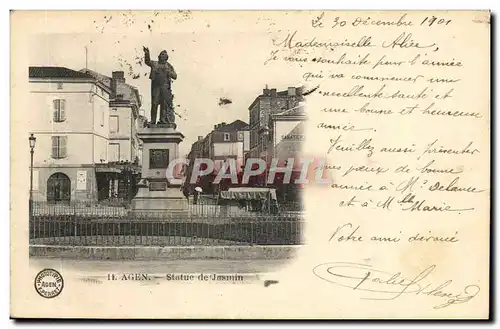 Le 30 Décembre 1901
Mademoiselle Alice,
Je vous souhaite pour l'année
qui va commencer une
excellente santé et
une bonne et heureuse
année.
Veuillez aussi présenter
mes vœux de bonne
année à Mr Delanne
et à Mlle Marie.
Votre ami dévoué
CPArama.com
11. AGEN. — Statue de Jasmin
AGEN